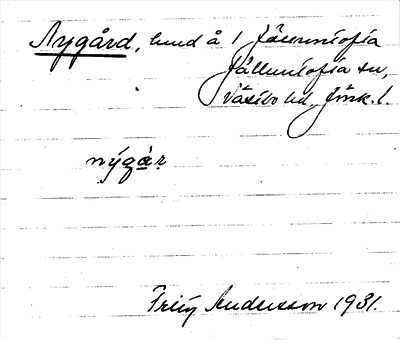 Nygård, lund å 1 Jäseruntofta
Jälluntofta sn,
Västbo hd. Jönk. l.
nýgàr
Freij Andersson 1931.